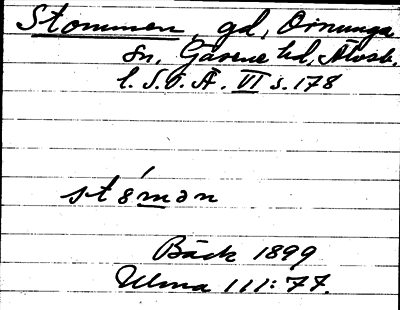 Stommen, gd, Ornunga
sn, Gäsene hd, Älvsb.
l. S.O.Ä. VI s. 178
stómən
Bäck 1899
Ulma 111:77.